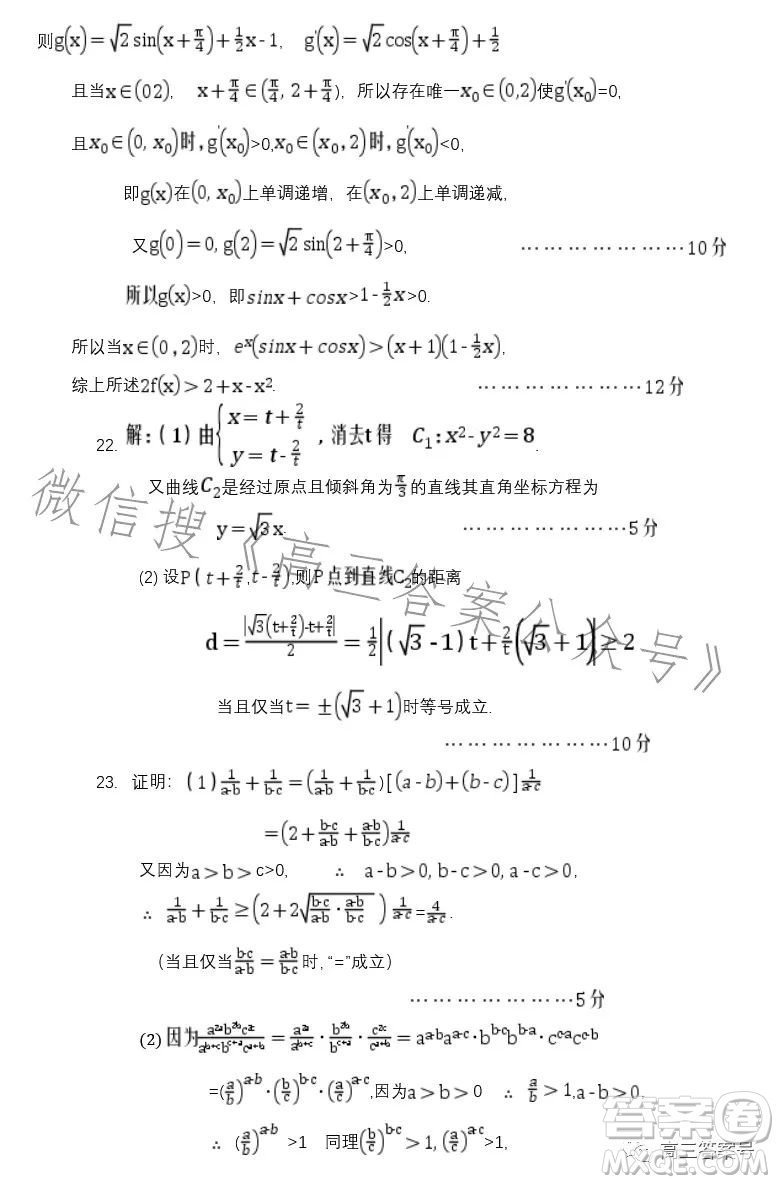 则g(x)=√2sin(x+π/4)+1/2x-1， g'(x)=√2cos(x+π/4)+1/2
且当x∈(02)， x+π/4∈(π/4, 2+π/4)，所以存在唯一x₀∈(0,2)使g'(x₀)=0,
且x₀∈(0, x₀)时,g'(x₀)>0,x₀∈(x₀, 2)时,g'(x₀)<0,
即g(x)在(0, x₀)上单调递增，在(x₀,2)上单调递减，
又g(0)=0, g(2)=√2sin(2+π/4)>0, ……………………10分
所以g(x)>0，即sinx+cosx>1-1/2x>0.
所以当x∈(0,2)时，eˣ(sinx+cosx)>(x+1)(1-1/2x),
综上所述2f(x)>2+x-x². ……………………12分
22. 解：(1)由{x=t+2/t y=t-2/t ，消去t得 C₁:x²-y²=8.
又曲线C₂是经过原点且倾斜角为π/3的直线其直角坐标方程为
y=√3x. ……………………5分
(2) 设P(t+2/t,t-2/t),则P点到直线C₂的距离
d=|√3(t+2/t)-t+2/t|/2=1/2|(√3-1)t+2/t(√3+1)|≥2
当且仅当t=±(√3+1)时等号成立.
……………………10分
23. 证明：(1)1/(a-b)+1/(b-c)=(1/(a-b)+1/(b-c))[(a-b)+(b-c)]1/(a-c)
=(2+(b-c)/(a-b)+(a-b)/(b-c))1/(a-c)
又因为a>b>c>0， ∴ a-b>0,b-c>0,a-c>0，
∴ 1/(a-b)+1/(b-c)≥(2+2√((b-c)/(a-b)·(a-b)/(b-c)))1/(a-c)=4/(a-c).
(当且仅当(b-c)/(a-b)=(a-b)/(b-c)时, “=”成立)
……………………5分
(2) 因为a^2a b^2b c^2c/(a^(b+c) b^(c+a) c^(a+b))=a^2a/a^(b+c)·b^2b/b^(c+a)·c^2c/c^(a+b)=a^(a-b)a^(a-c)·b^(b-c)b^(b-a)·c^(c-a)c^(c-b)
=(a/b)^(a-b)·(b/c)^(b-c)·(a/c)^(a-c),因为a>b>0 ∴ a/b>1,a-b>0.
∴ (a/b)^(a-b)>1 同理(b/c)^(b-c)>1,(a/c)^(a-c)>1,
微信搜《高三答案公众号》
答案圈
高三答案号